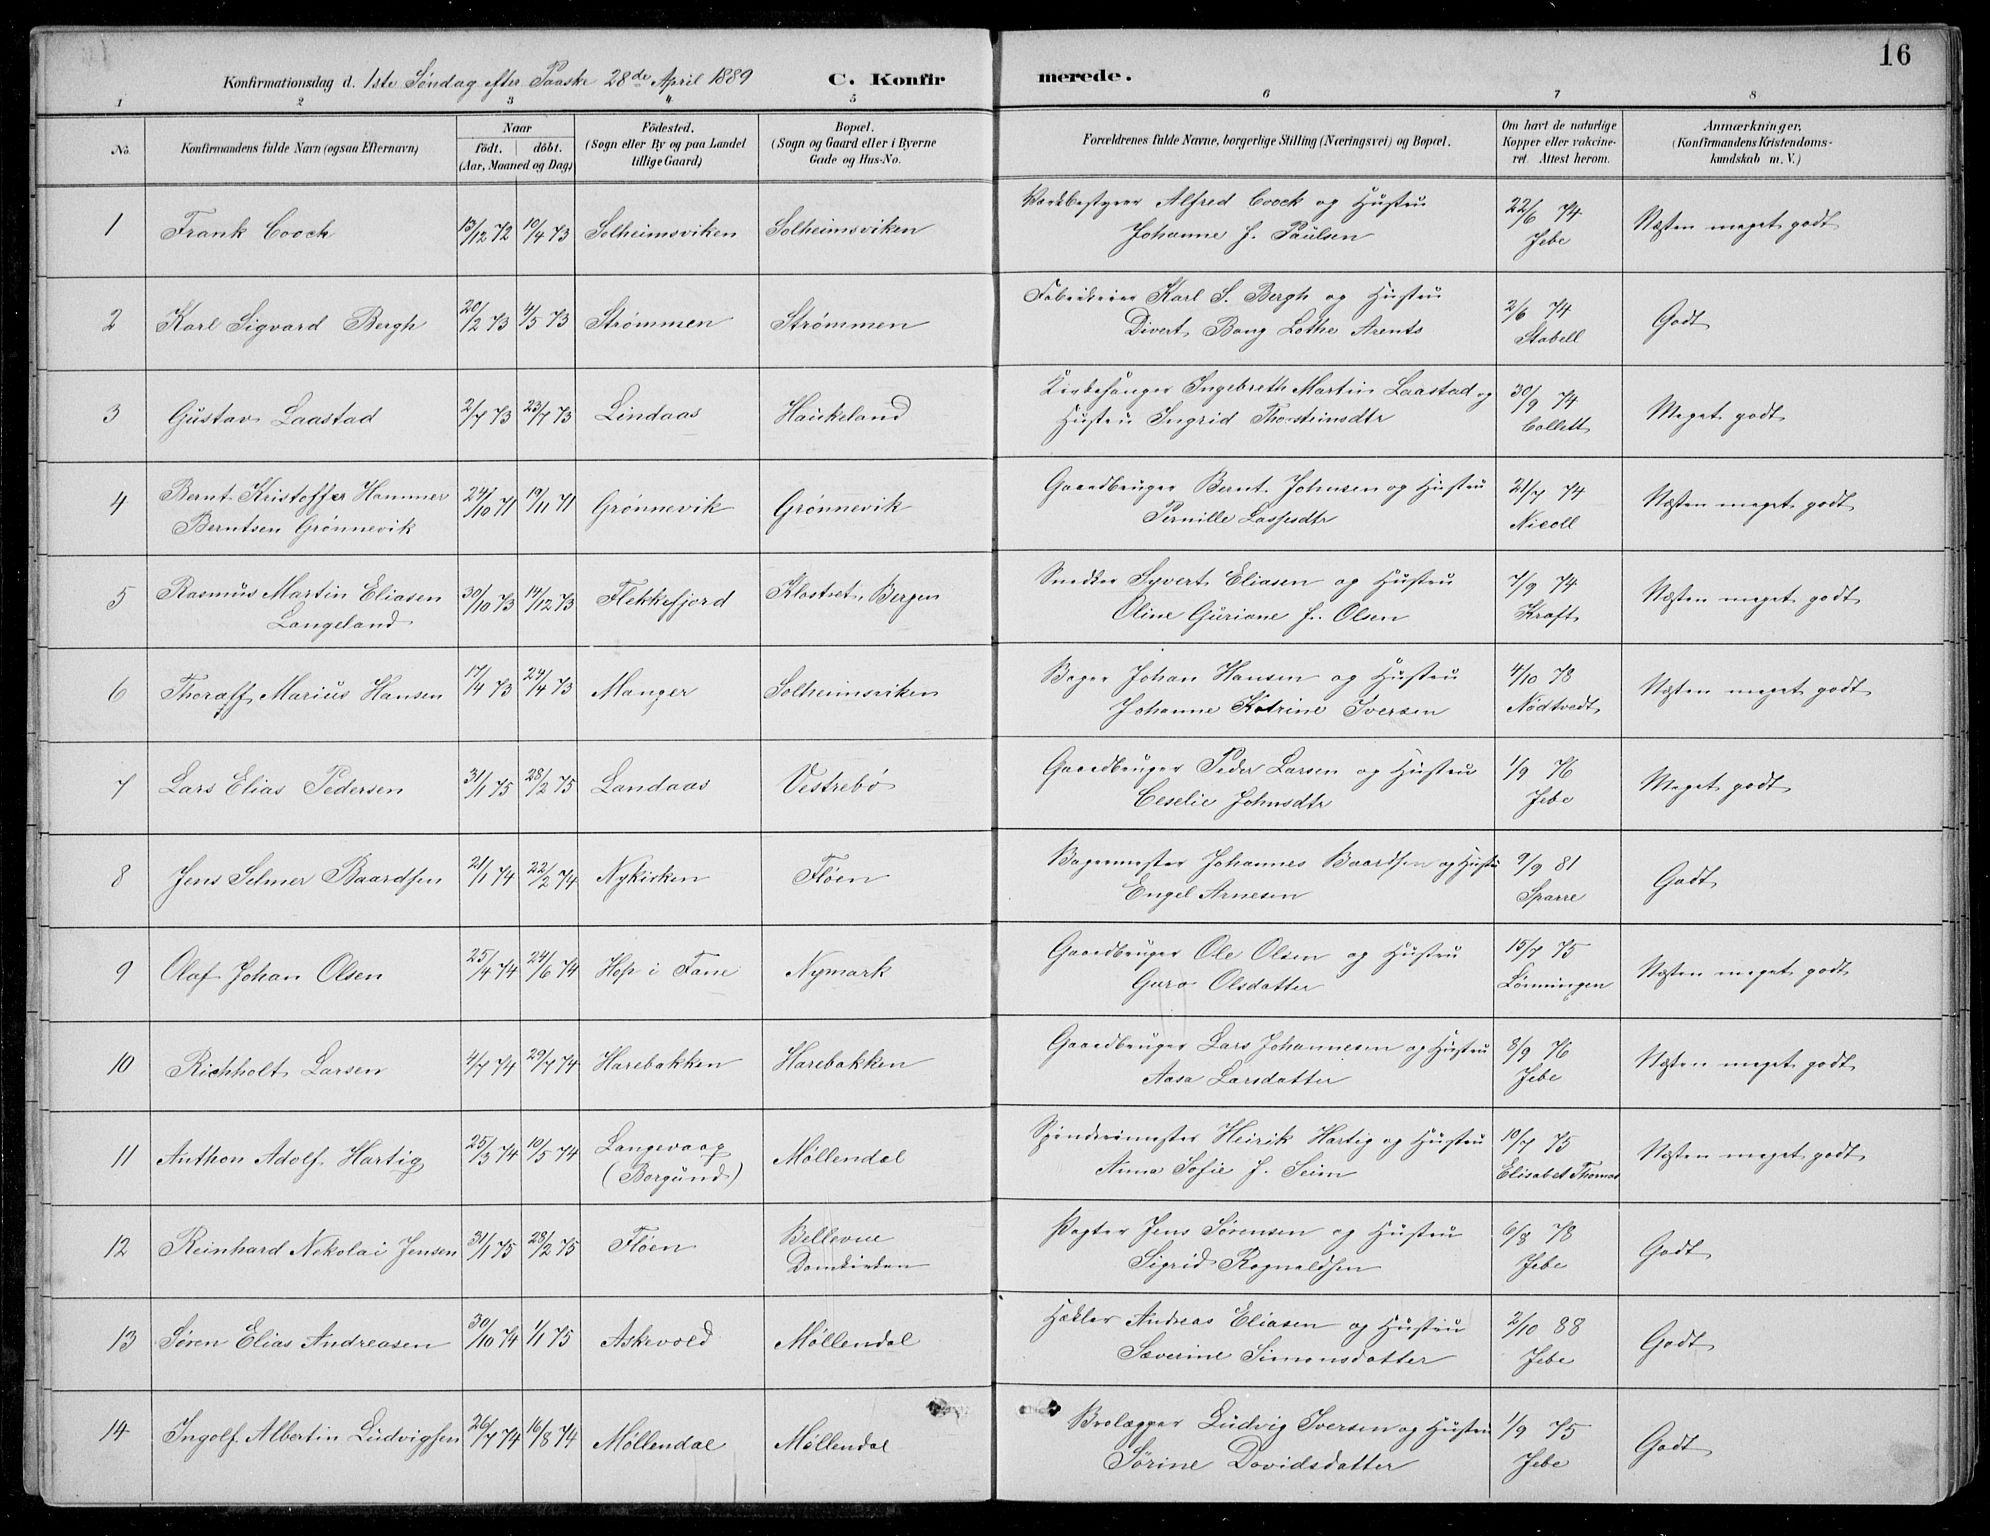 16
Konfirmationsdag d. 1ste Søndag efter Paaske 28de April 1889 C. Konfirmerede.
1 2 3 4 5 6 7 8
No. Konfirmandens fulde Navn (ogsaa Efternavn) Naar födt. döbt. (Aar, Maaned og Dag) Födested. (Sogn eller By og paa Landet tillige Gaard) Bopæl. (Sogn og Gaard eller i Byerne Gade og Hus-No. Forældrenes fulde Navne, borgerlige Stilling (Næringsvei) og Bopæl. Om havt de naturlige Kopper eller vakcineret. Attest herom. Anmærkninger. (Konfirmandens Kristendomskundskab m. V.)
1 Frank Coock 13/12 72 10/4 73 Solheimsviken Solheimsviken Værkbestyrer Alfred Coock og Hustru 22/6 74 Næsten meget godt
Johanne f. Paulsen Jebe
2 Karl Sigvard Bergh 20/2 73 4/5 73 Strømmen Strømmen Fabrikeier Karl S. Bergh og Hustru 2/6 74 Godt
Divert Bang Lothe Arents Stabell
3 Gustav Laastad 2/7 73 23/7 73 Lindaas Haukeland Kirkesanger Ingebreth Martin Laastad og 30/9 74 Meget godt
Hustru Ingrid Thorsteinsdtr Collett
4 Bernt Kristoffer Hammer 24/10 71 19/11 71 Grønnevik Grønnevik Gaardbruger Bernt Johnsen og Hustru 21/7 74 Næsten meget godt
Berntsen Grønnevik Pernille Lassesdtr Nicoll
5 Rasmus Martin Eliasen 30/10 73 14/12 73 Flekkefjord Klostret Bergen Snedker Syvert Eliasen og Hustru 7/9 74 Næsten meget godt
Langeland Oline Guriane f. Olsen Kraft
6 Thoralf Marius Hansen 17/4 73 24/4 73 Manger Solheimsviken Bager Johan Hansen og Hustru 4/10 78 Næsten meget godt
Johanne Katrine Iversen Nødtvedt
7 Lars Elias Pedersen 31/1 75 28/2 75 Landaas Vestrebø Gaardbruger Peder Larsen og Hustru 1/9 76 Meget godt
Ceselie Johnsdtr Jebe
8 Jens Selmer Baardsen 21/1 74 22/2 74 Nykirken Fløen Bagermester Johannes Baardsen og Hustru 9/9 81 Godt
Engel Arnesen Sparre
9 Olaf Johan Olsen 25/4 74 24/6 74 Hop i Fane Nymark Gaardbruger Ole Olsen og Hustru 15/7 75 Næsten meget godt
Guro Olsdatter Lønningen
10 Richholt Larsen 4/7 74 29/7 74 Harebakken Harebakken Gaardbruger Lars Johannesen og Hustru 8/9 76 Næsten meget godt
Aasa Larsdatter Jebe
11 Anthon Adolf Hartig 25/3 74 10/5 74 Langevaag Møllendal Spinderimester Heirik Hartig og Hustru 10/7 75 Næsten meget godt
(Borgund) Anna Sofie f. Seim Elisabet Thomas
12 Reinhard Nekolai Jensen 31/1 75 28/2 75 Fløen Bellevue Pagter Jens Sørensen og Hustru 6/8 78 Godt
Domkirken Sigrid Ragnaldsen Jebe
13 Søren Elias Andreasen 30/10 74 1/1 75 Askevold Møllendal Hækler Andreas Eliasen og Hustru 2/10 88 Godt
Severine Simonsdatter Jebe
14 Ingolf Albertin Ludvigsen 26/7 74 16/8 74 Møllendal Møllendal Brolægger Ludvig Iversen og Hustru 1/9 75 Godt
Sørine Davidsdatter Jebe